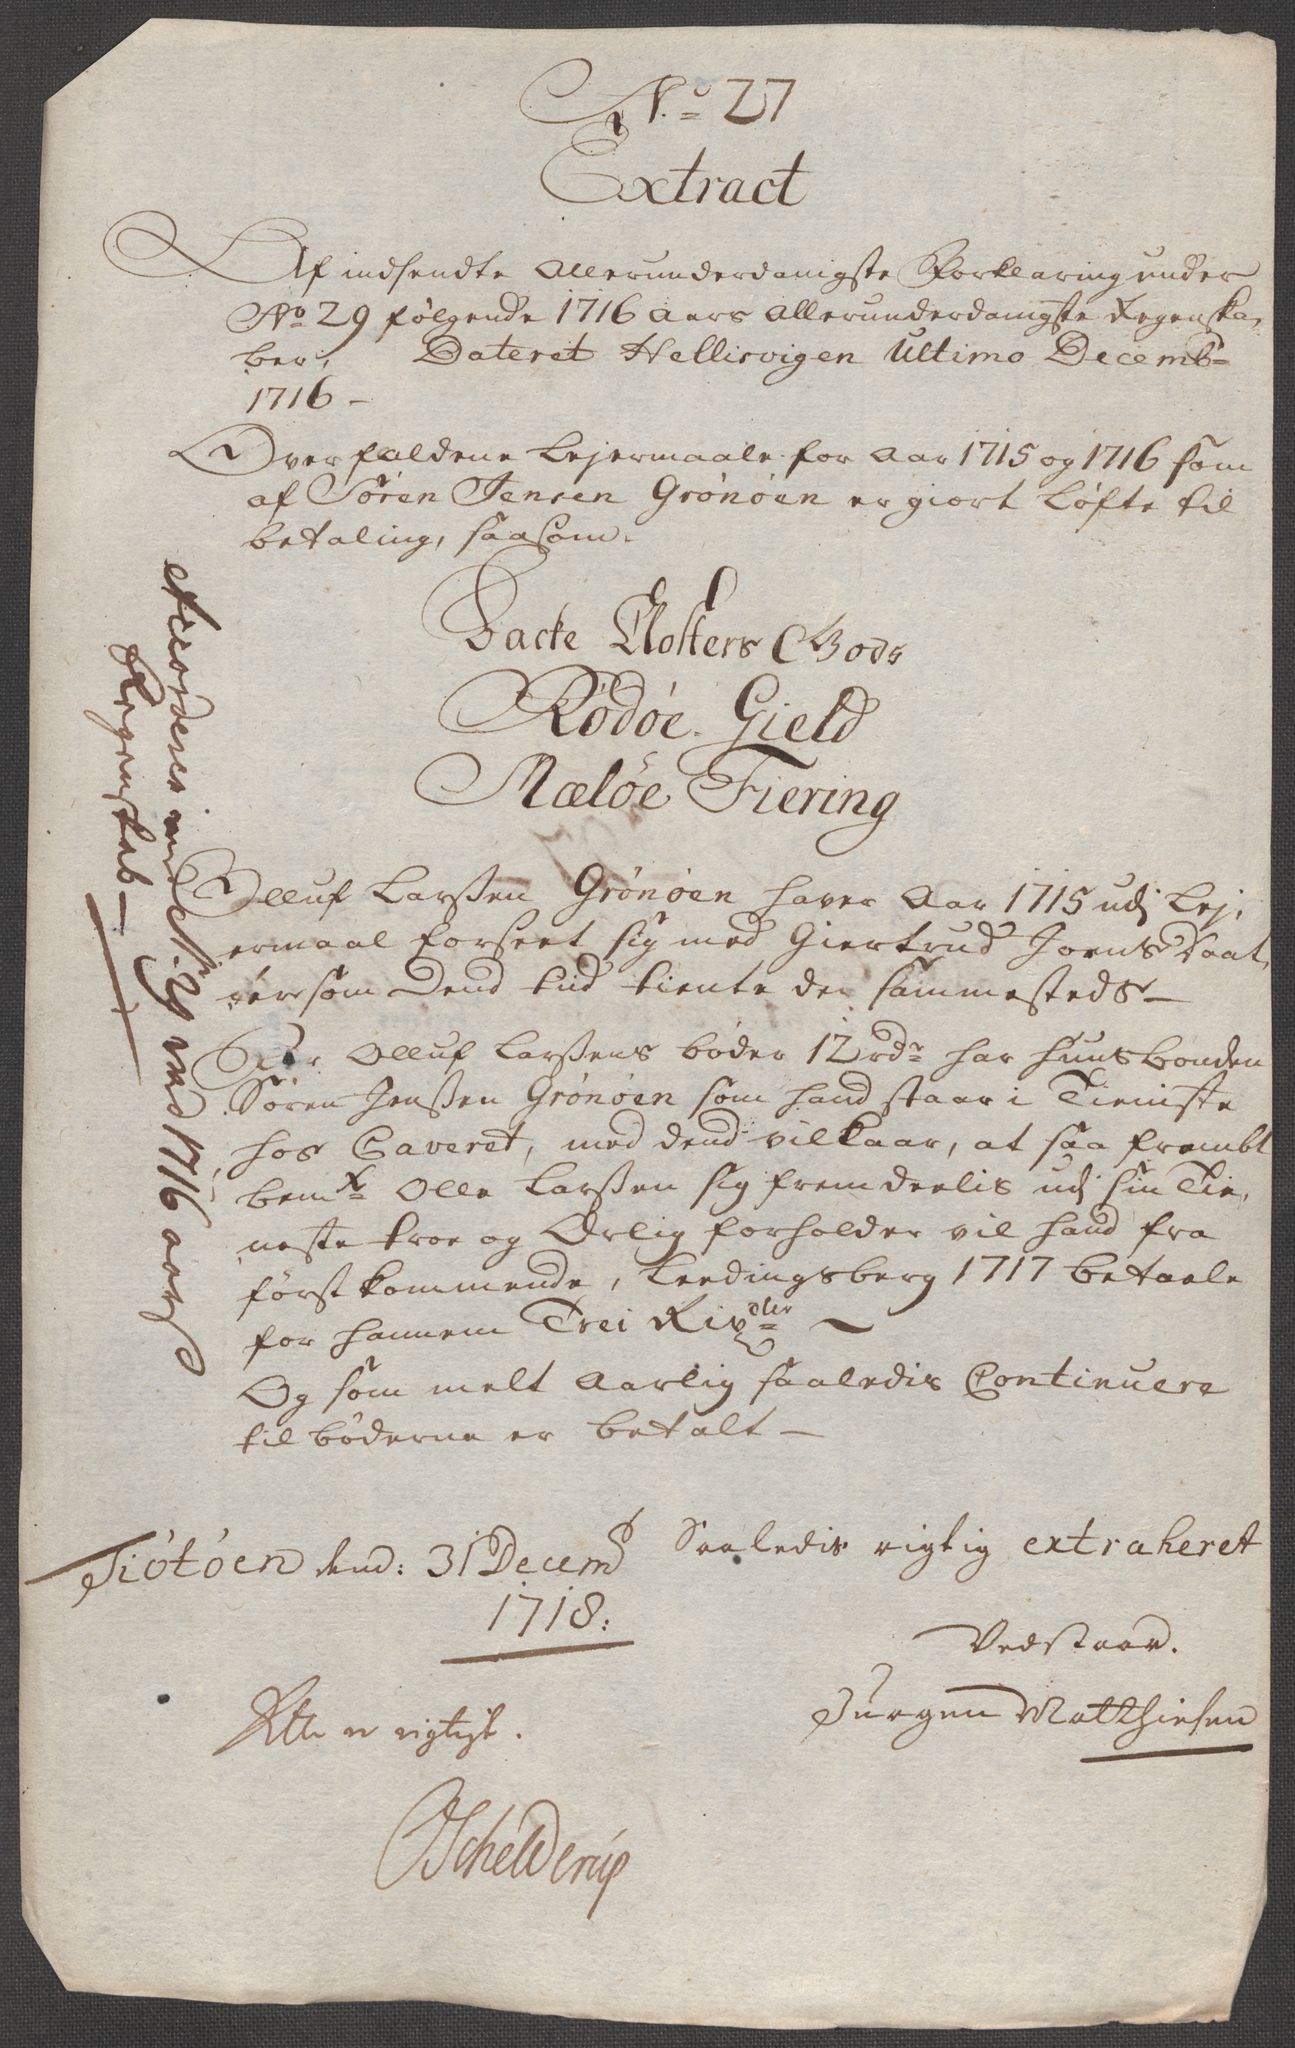 No 27
Extract
Af indsendte Allerunderdanigste Forklaring under
No 29 følgende 1716 Aars Allerunderdanigste Regenska,
ber, Dateret Hellisvigen Ultimo Decemb=
1716 -
Over faldene Lejermaale for Aar 1715 og 1716 som
af Søren Jensen Grönöen er giort Løfte til
betaling, saasom.
Backe Closters Gods
Rödöe Gield
Mælöe Fiering
Olluf Larssen Grönöen haver Aar 1715 udj Lej,
ermaal forseet sig med Giertrud Joens Daat,
ter som Dend tiid tiente der sammesteds -
For Olluf Larssens bøder 12 rdr har huusbonden
Søren Jenssen Grönöen som hand staar i Tieniste
hos Caveret, med dend vilkaar, at saa frembt
bemte Olle Larssen sig fremdeelis udj sin Tie,
neste troe og Ærlig forholder vil hand fra
först kommende, Leedingsberg 1717 betaele
for hannem Trei Rixdler
Og som melt Aarlig saaledis Continuere
til bøderne er betalt -
Saaledis rigtig extraheret
Tiötöen dend: 31 Decemb
1718:
Vedstaar.
Jurgen Matthiesen
Rtte er rigtigt.
Schelderup
Accorderer med No. 29 ved 1716 aars
Regenskab -